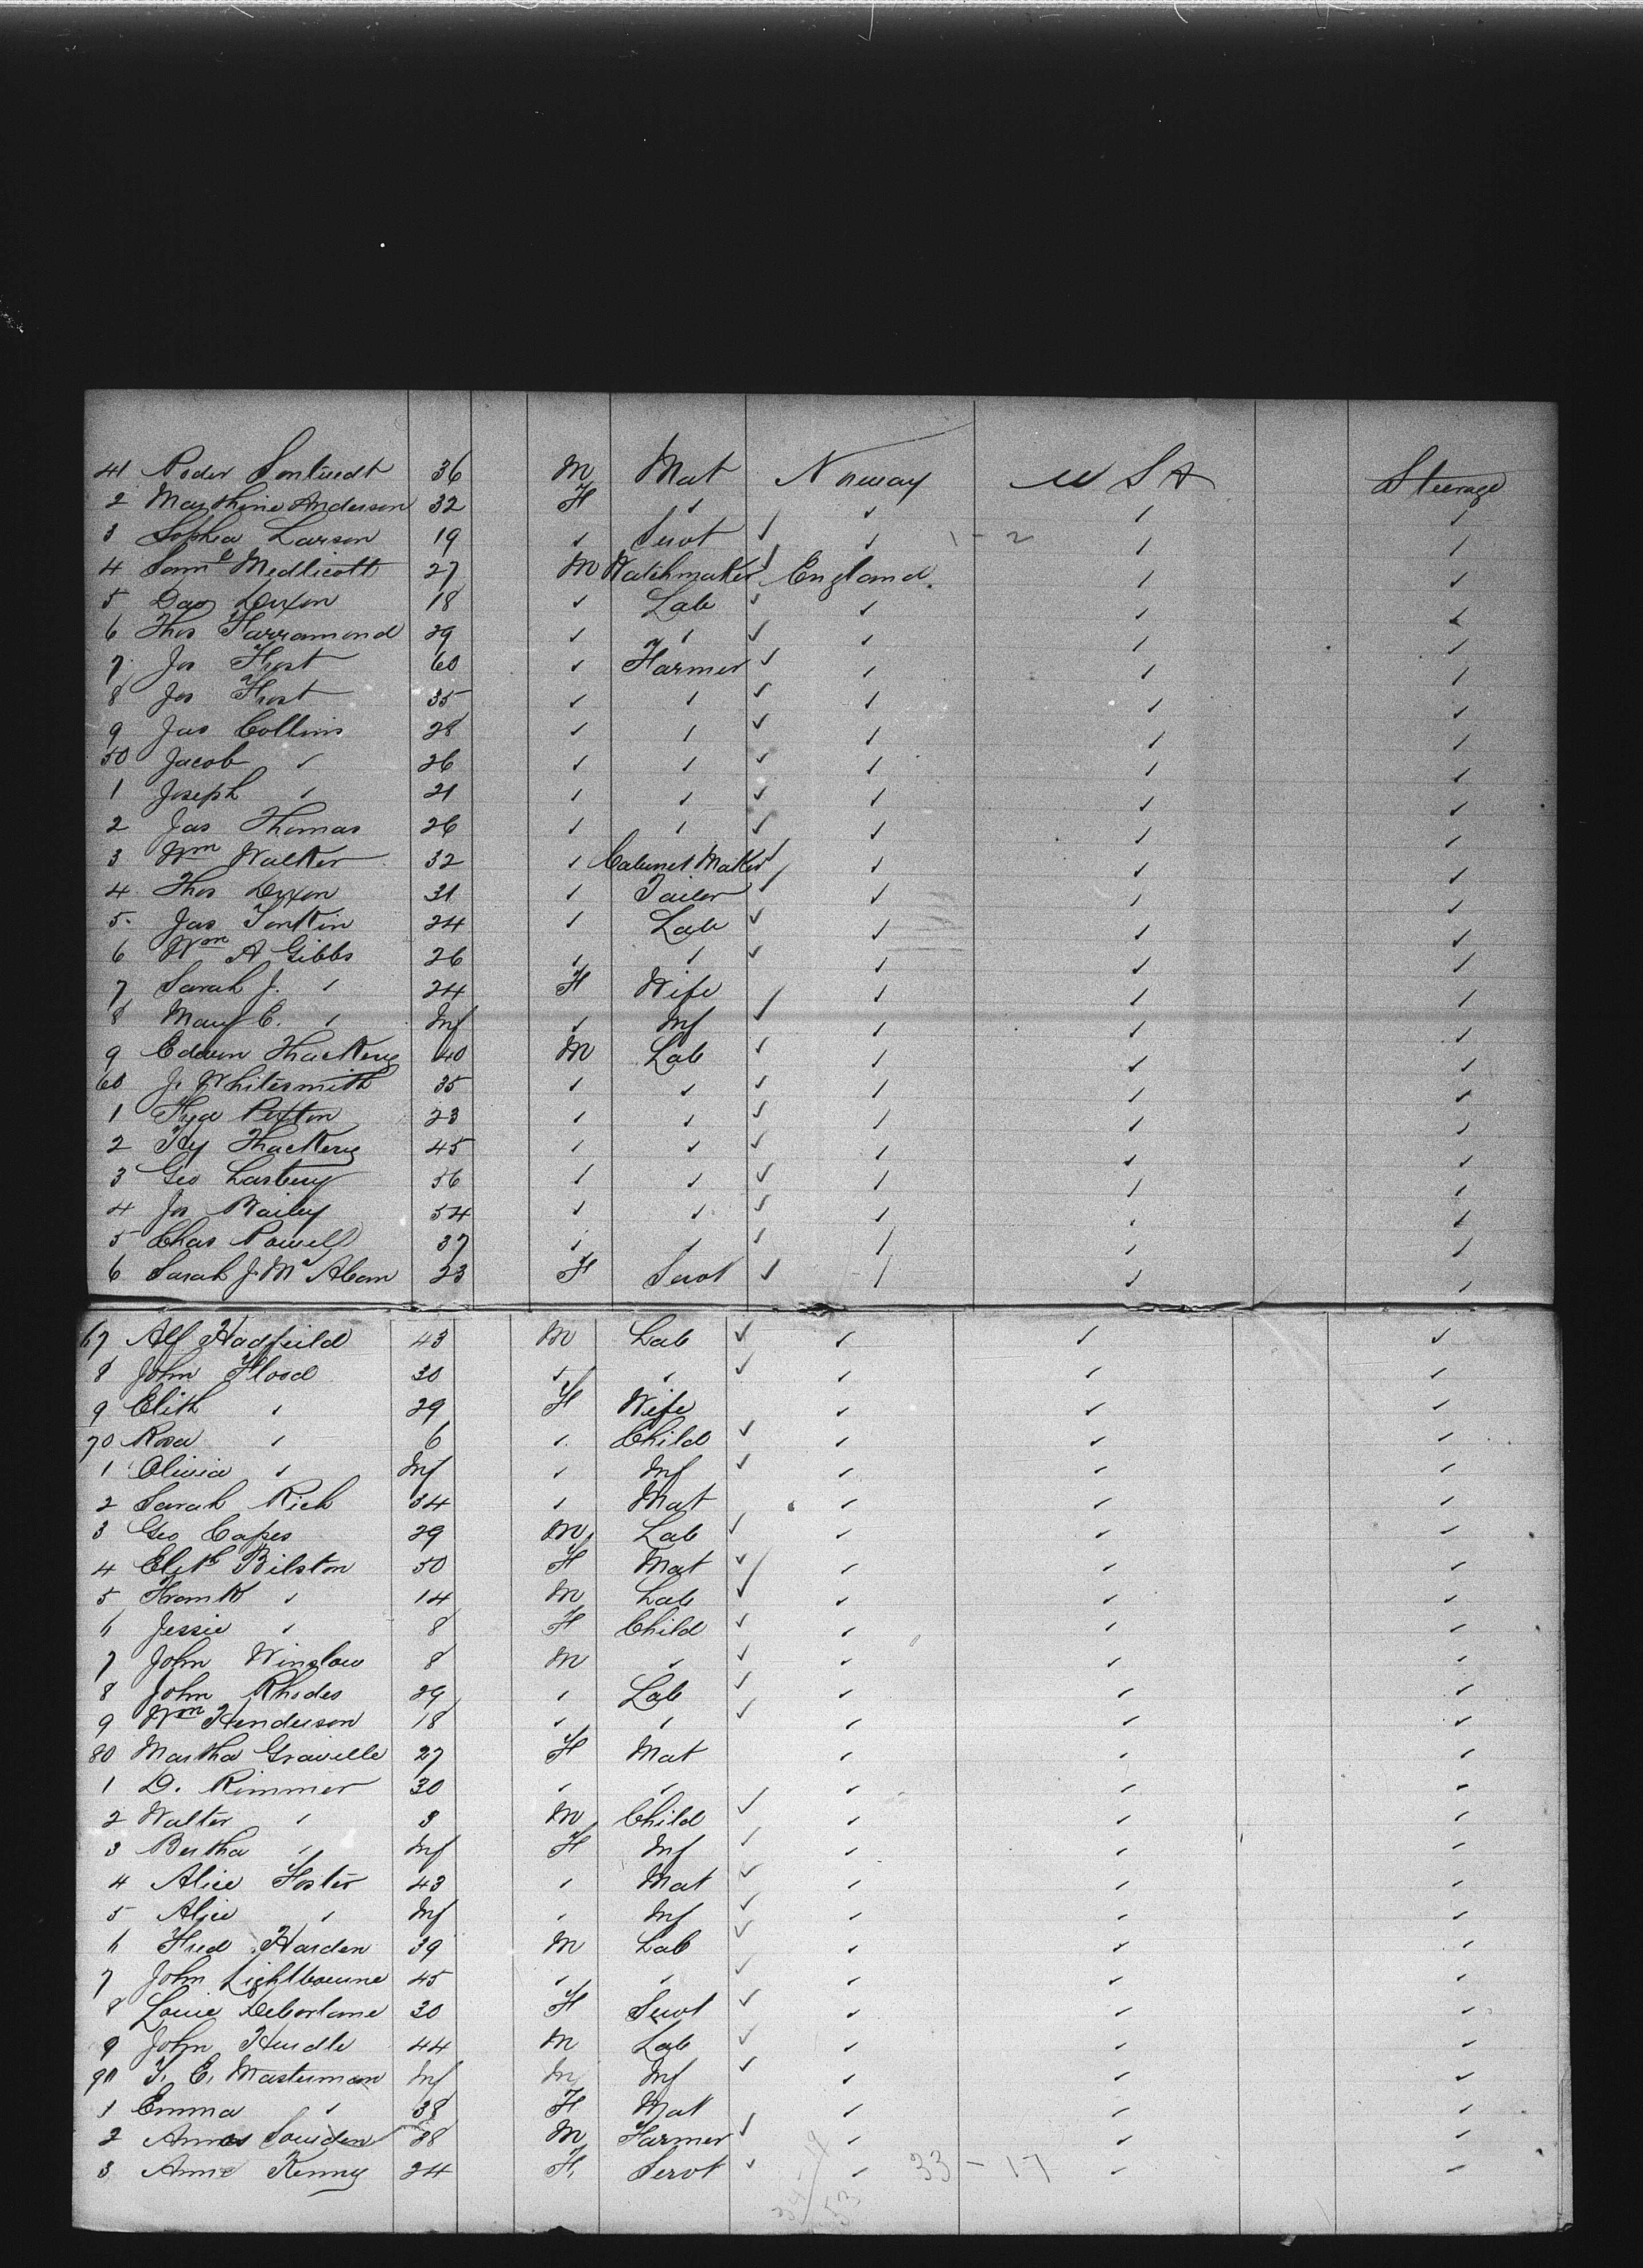 41 Peder Sontvedt 36 M Mat Norway U S A Steerage
2 Marthine Anderson 32 F ✓ ✓ ✓ ✓
3 Sophia Larson 19 ✓ Servt ✓ ✓ 1 - 2 ✓ ✓
4 Saml Medlicott 27 M Watchmaker ✓ England ✓ ✓
5 Dav Dixon 18 ✓ Lab ✓ ✓ ✓ ✓
6 Thos Farramond 29 ✓ ✓ ✓ ✓ ✓ ✓
7 Jos Frost 60 ✓ Farmer ✓ ✓ ✓ ✓
8 Jos Frost 35 ✓ ✓ ✓ ✓ ✓ ✓
9 Jas Collins 28 ✓ ✓ ✓ ✓ ✓ ✓
50 Jacob ✓ 26 ✓ ✓ ✓ ✓ ✓ ✓
1 Joseph ✓ 21 ✓ ✓ ✓ ✓ ✓ ✓
2 Jas Thomas 26 ✓ ✓ ✓ ✓ ✓ ✓
3 Wm Walker 32 ✓ Cabinet Maker ✓ ✓ ✓ ✓
4 Thos Dixon 31 ✓ Tailor ✓ ✓ ✓ ✓
5 Jas Tonkin 24 ✓ Lab ✓ ✓ ✓ ✓
6 Wm A Gibbs 26 ✓ ✓ ✓ ✓ ✓ ✓
7 Sarah J. ✓ 24 F Wife ✓ ✓ ✓
8 Mary C. ✓ Inf ✓ Inf ✓ ✓ ✓ ✓
9 Edwin Thackery 40 M Lab ✓ ✓ ✓ ✓
60 J. Whitesmith 35 ✓ ✓ ✓ ✓ ✓ ✓
1 Pexton 23 ✓ ✓ ✓ ✓ ✓ ✓
2 Hy Thackery 45 ✓ ✓ ✓ ✓ ✓ ✓
3 Geo Lasbury 56 ✓ ✓ ✓ ✓ ✓ ✓
4 Jos Bailey 54 ✓ ✓ ✓ ✓ ✓ ✓
5 Chas Powell 37 ✓ ✓ ✓ ✓ ✓ ✓
6 Sarah J. 23 F Servt ✓ ✓ ✓ ✓
67 Alf Hadfield 43 M Lab ✓ ✓ ✓ ✓
8 John Flood 30 ✓ ✓ ✓ ✓ ✓ ✓
9 Elith ✓ 29 F Wife ✓ ✓ ✓
70 Rosa ✓ 6 ✓ Child ✓ ✓ ✓ ✓
1 Olivia ✓ Inf ✓ Inf ✓ ✓ ✓ ✓
2 Sarah Rich 34 ✓ Mat ✓ ✓ ✓
3 Geo Capes 29 M Lab ✓ ✓ ✓ ✓
4 Elith Bilston 50 F Mat ✓ ✓ ✓ ✓
5 Frank ✓ 14 M Lab ✓ ✓ ✓ ✓
6 Jessie ✓ 8 F Child ✓ ✓ ✓ ✓
7 John Winslow 8 M ✓ ✓ ✓ ✓ ✓
8 John Rhodes 29 ✓ Lab ✓ ✓ ✓ ✓
9 Wm Henderson 18 ✓ ✓ ✓ ✓ ✓ ✓
80 Martha Graville 27 F Mat ✓ ✓ ✓
1 D. Rimmer 30 ✓ ✓ ✓ ✓ ✓
2 Walter ✓ 3 M Child ✓ ✓ ✓ ✓
3 Bertha ✓ Inf F Inf ✓ ✓ ✓ ✓
4 Alice Foster 43 ✓ Mat ✓ ✓ ✓ ✓
5 Alice ✓ Inf ✓ Inf ✓ ✓ ✓ ✓
6 Fred Harden 39 M Lab ✓ ✓ ✓ ✓
7 John Lightbourne 45 ✓ ✓ ✓ ✓ ✓ ✓
8 Louie 30 F Servt ✓ ✓ ✓ ✓
9 John Hurdle 44 M Lab ✓ ✓ ✓ ✓
90 T. E. Masterman Inf M Inf ✓ ✓ ✓ ✓
1 Emma ✓ 38 F Mat ✓ ✓ ✓
2 Amos Sowden 28 M Farmer ✓ ✓ ✓ ✓
3 Anne Kenny 24 F. Servt ✓ ✓ 33 - 17 ✓ ✓